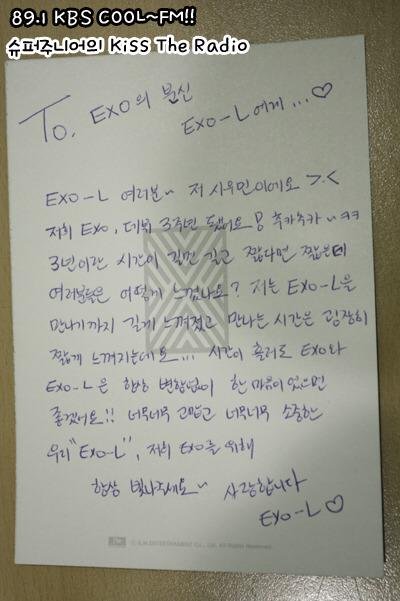 89.1 KBS COOL~FM!!
슈퍼주니어의 Kiss The Radio
To. EXO의 분신
EXO-L에게...♡
EXO-L 여러분~ 저 시우민이에요 >.<
저희 EXO, 데뷔 3주년 됐어요 용 추카추카~ㅋㅋ
3년이란 시간이 길면 길고 짧다면 짧은데
여러분들은 어떻게 느꼈나요? 저는 EXO-L을
만나기까지 길게 느껴졌고 만나는 시간은 굉장히
짧게 느껴지는데요... 시간이 흘러도 EXO와
EXO-L은 항상 변함없이 한 마음이 있으면
좋겠어요!! 너무너무 고맙고 너무너무 소중한
우리 "EXO-L", 저희 EXO를 위해
항상 빛나주세요~ 사랑합니다
EXO-L ♡
© S.M.ENTERTAINMENT Co., Ltd. All Rights Reserved.